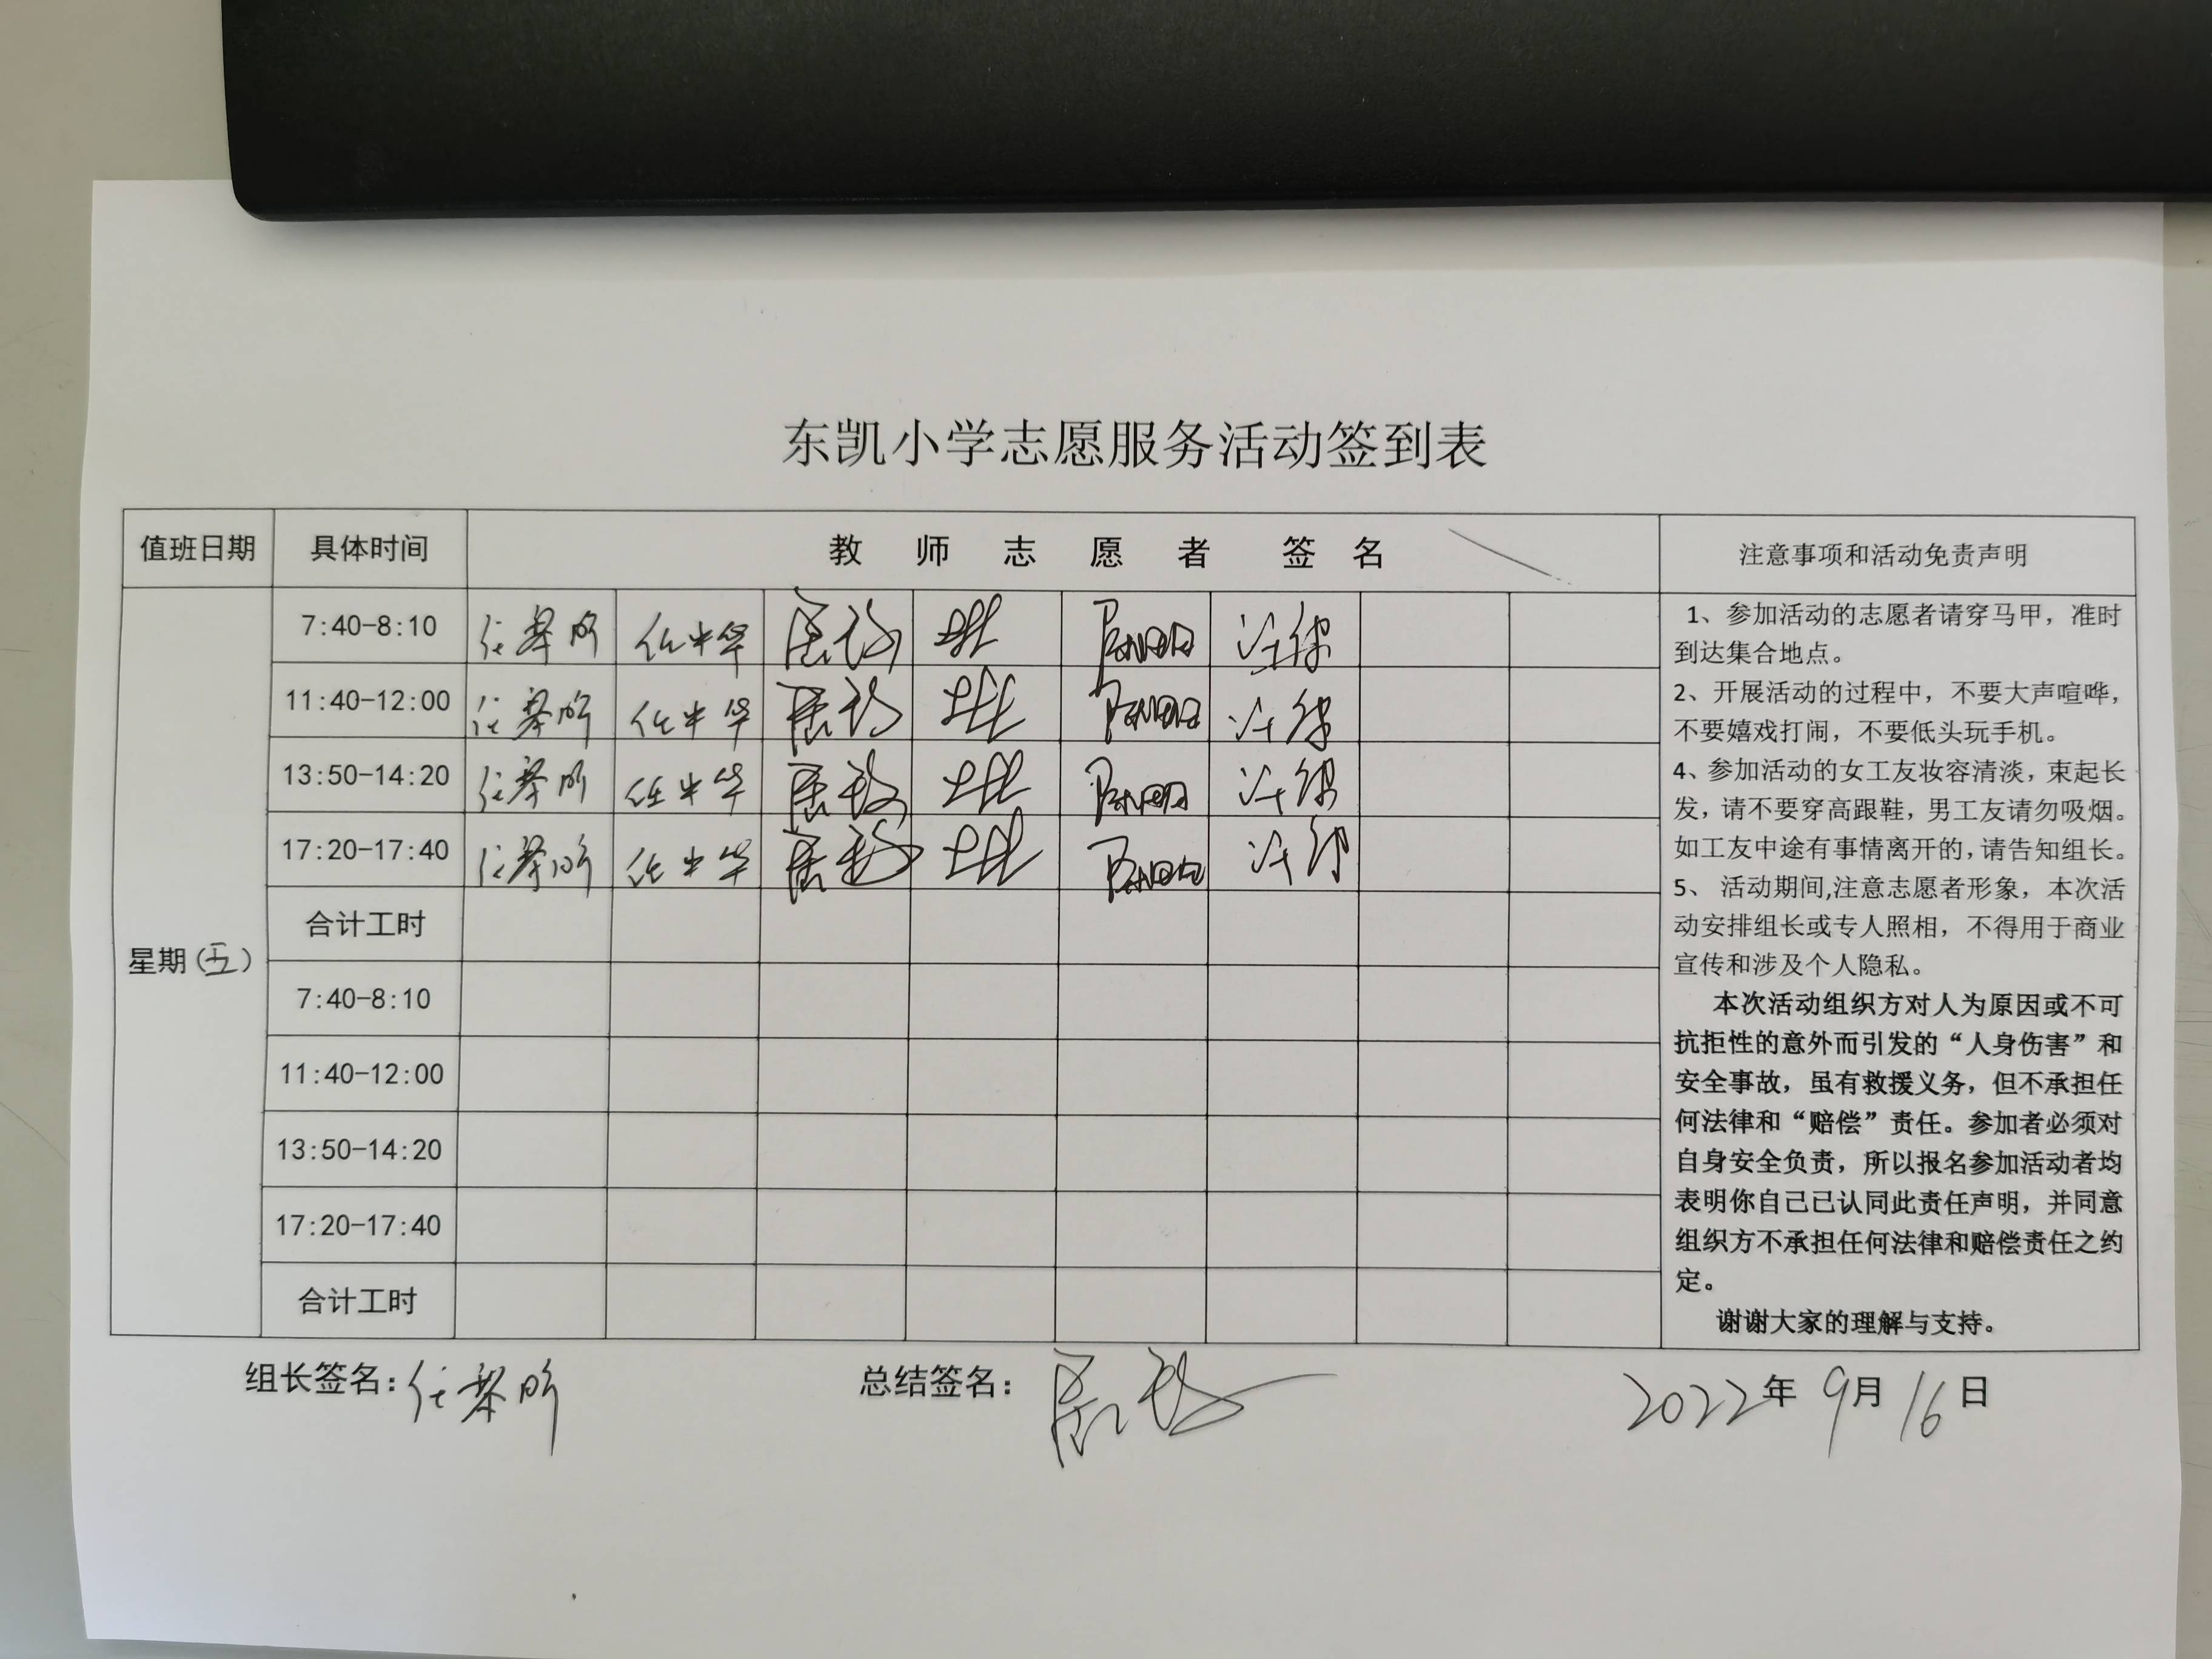 东凯小学志愿服务活动签到表
值班日期 具体时间 教师志愿者签名 注意事项和活动免责声明
星期(五)
7:40-8:10 任中华
11:40-12:00 任中华
13:50-14:20 任中华
17:20-17:40 任中华
合计工时
7:40-8:10
11:40-12:00
13:50-14:20
17:20-17:40
合计工时
1、参加活动的志愿者请穿马甲，准时
到达集合地点。
2、开展活动的过程中，不要大声喧哗，
不要嬉戏打闹，不要低头玩手机。
4、参加活动的女工友妆容清淡，束起长
发，请不要穿高跟鞋，男工友请勿吸烟。
如工友中途有事情离开的,请告知组长。
5、 活动期间,注意志愿者形象，本次活
动安排组长或专人照相，不得用于商业
宣传和涉及个人隐私。
本次活动组织方对人为原因或不可
抗拒性的意外而引发的“人身伤害”和
安全事故，虽有救援义务，但不承担任
何法律和“赔偿”责任。参加者必须对
自身安全负责，所以报名参加活动者均
表明你自己己认同此责任声明，并同意
组织方不承担任何法律和赔偿责任之约
定。
谢谢大家的理解与支持。
组长签名: 总结签名： 2022年 9月 16日